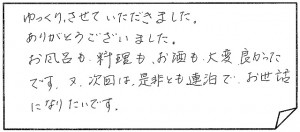 ゆっくり、させていただきました。
ありがとうございました。
お風呂も、料理も、お酒も、大変良かった
です。又、次回は、是非とも連泊で、お世話
になりたいです。